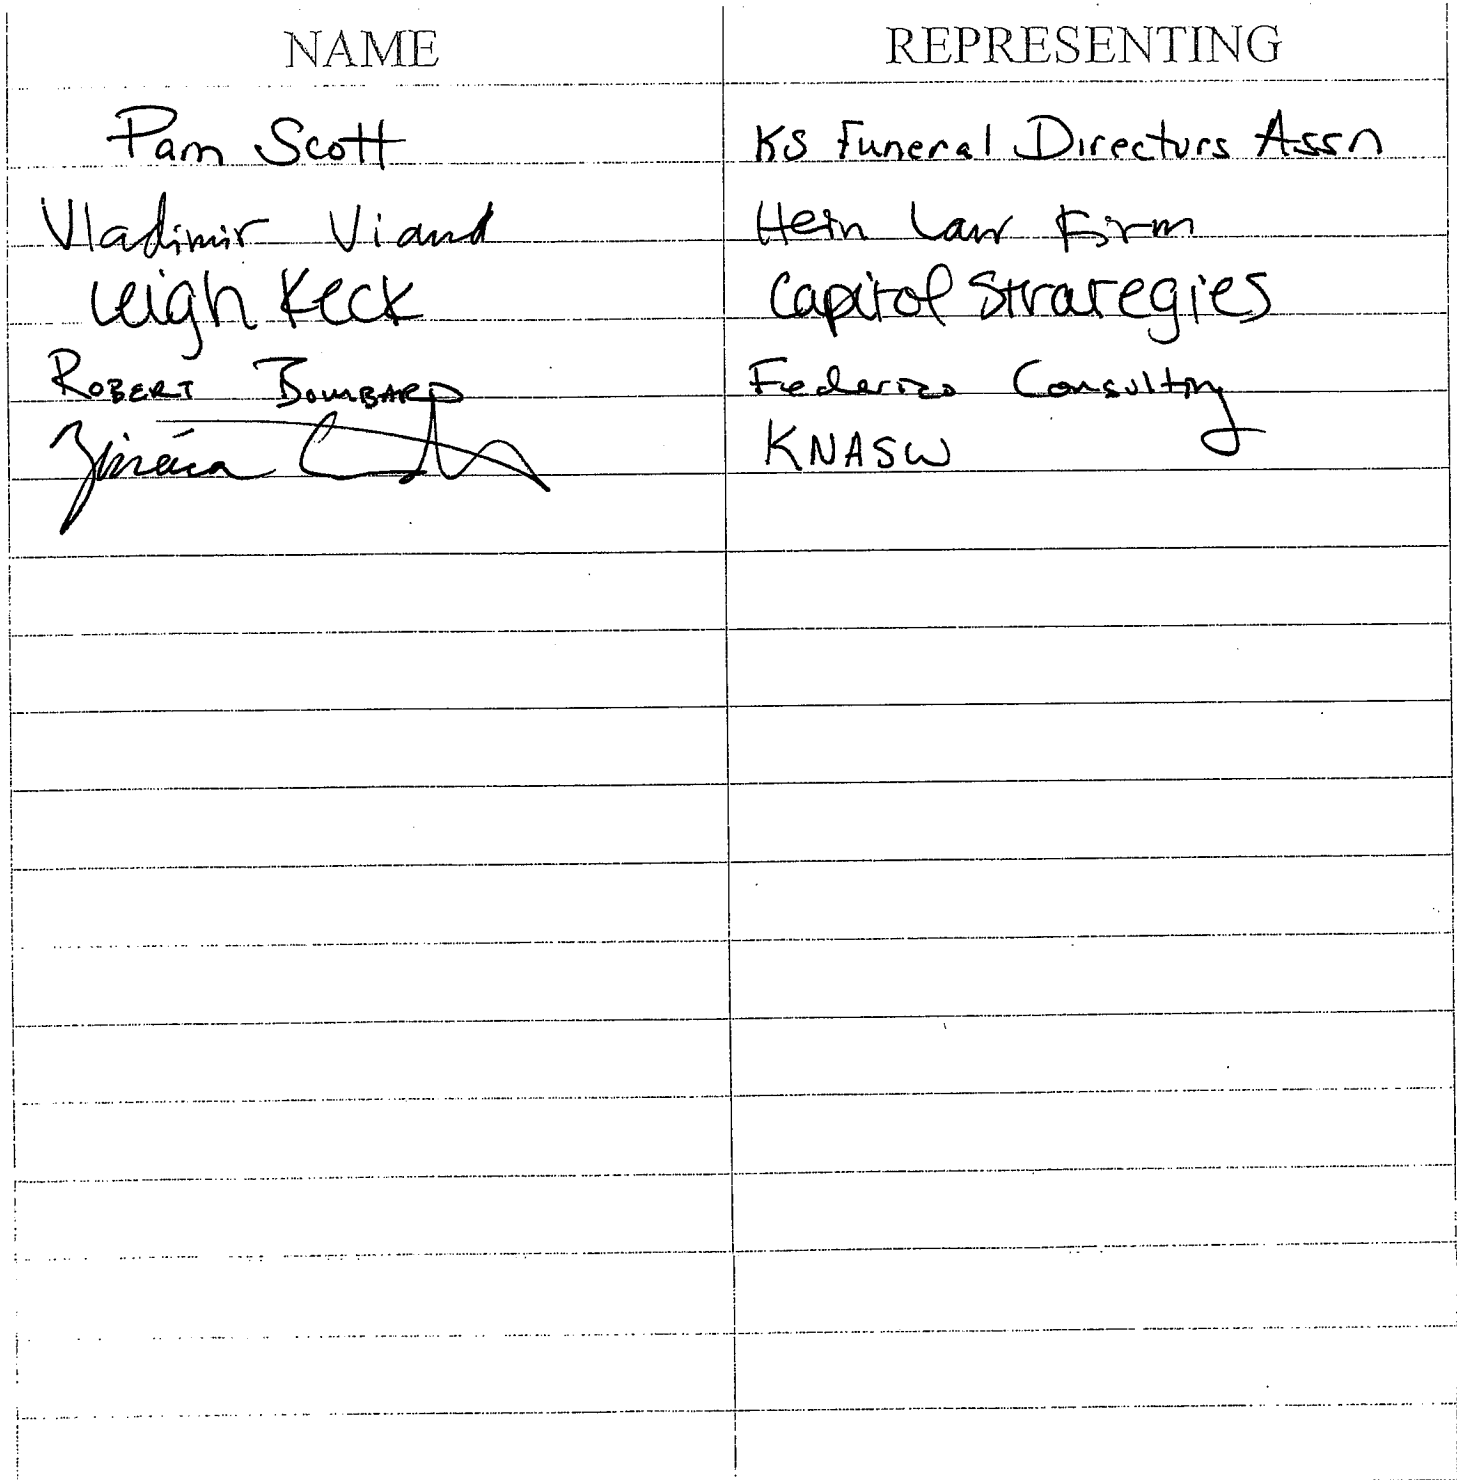 NAME REPRESENTING
Pam Scott KS Funeral Directors Assn
Vladimir Viand Hein Law Firm
Leigh Keck Capitol Strategies
ROBERT BOMBARD Federico Consulting
KNASW